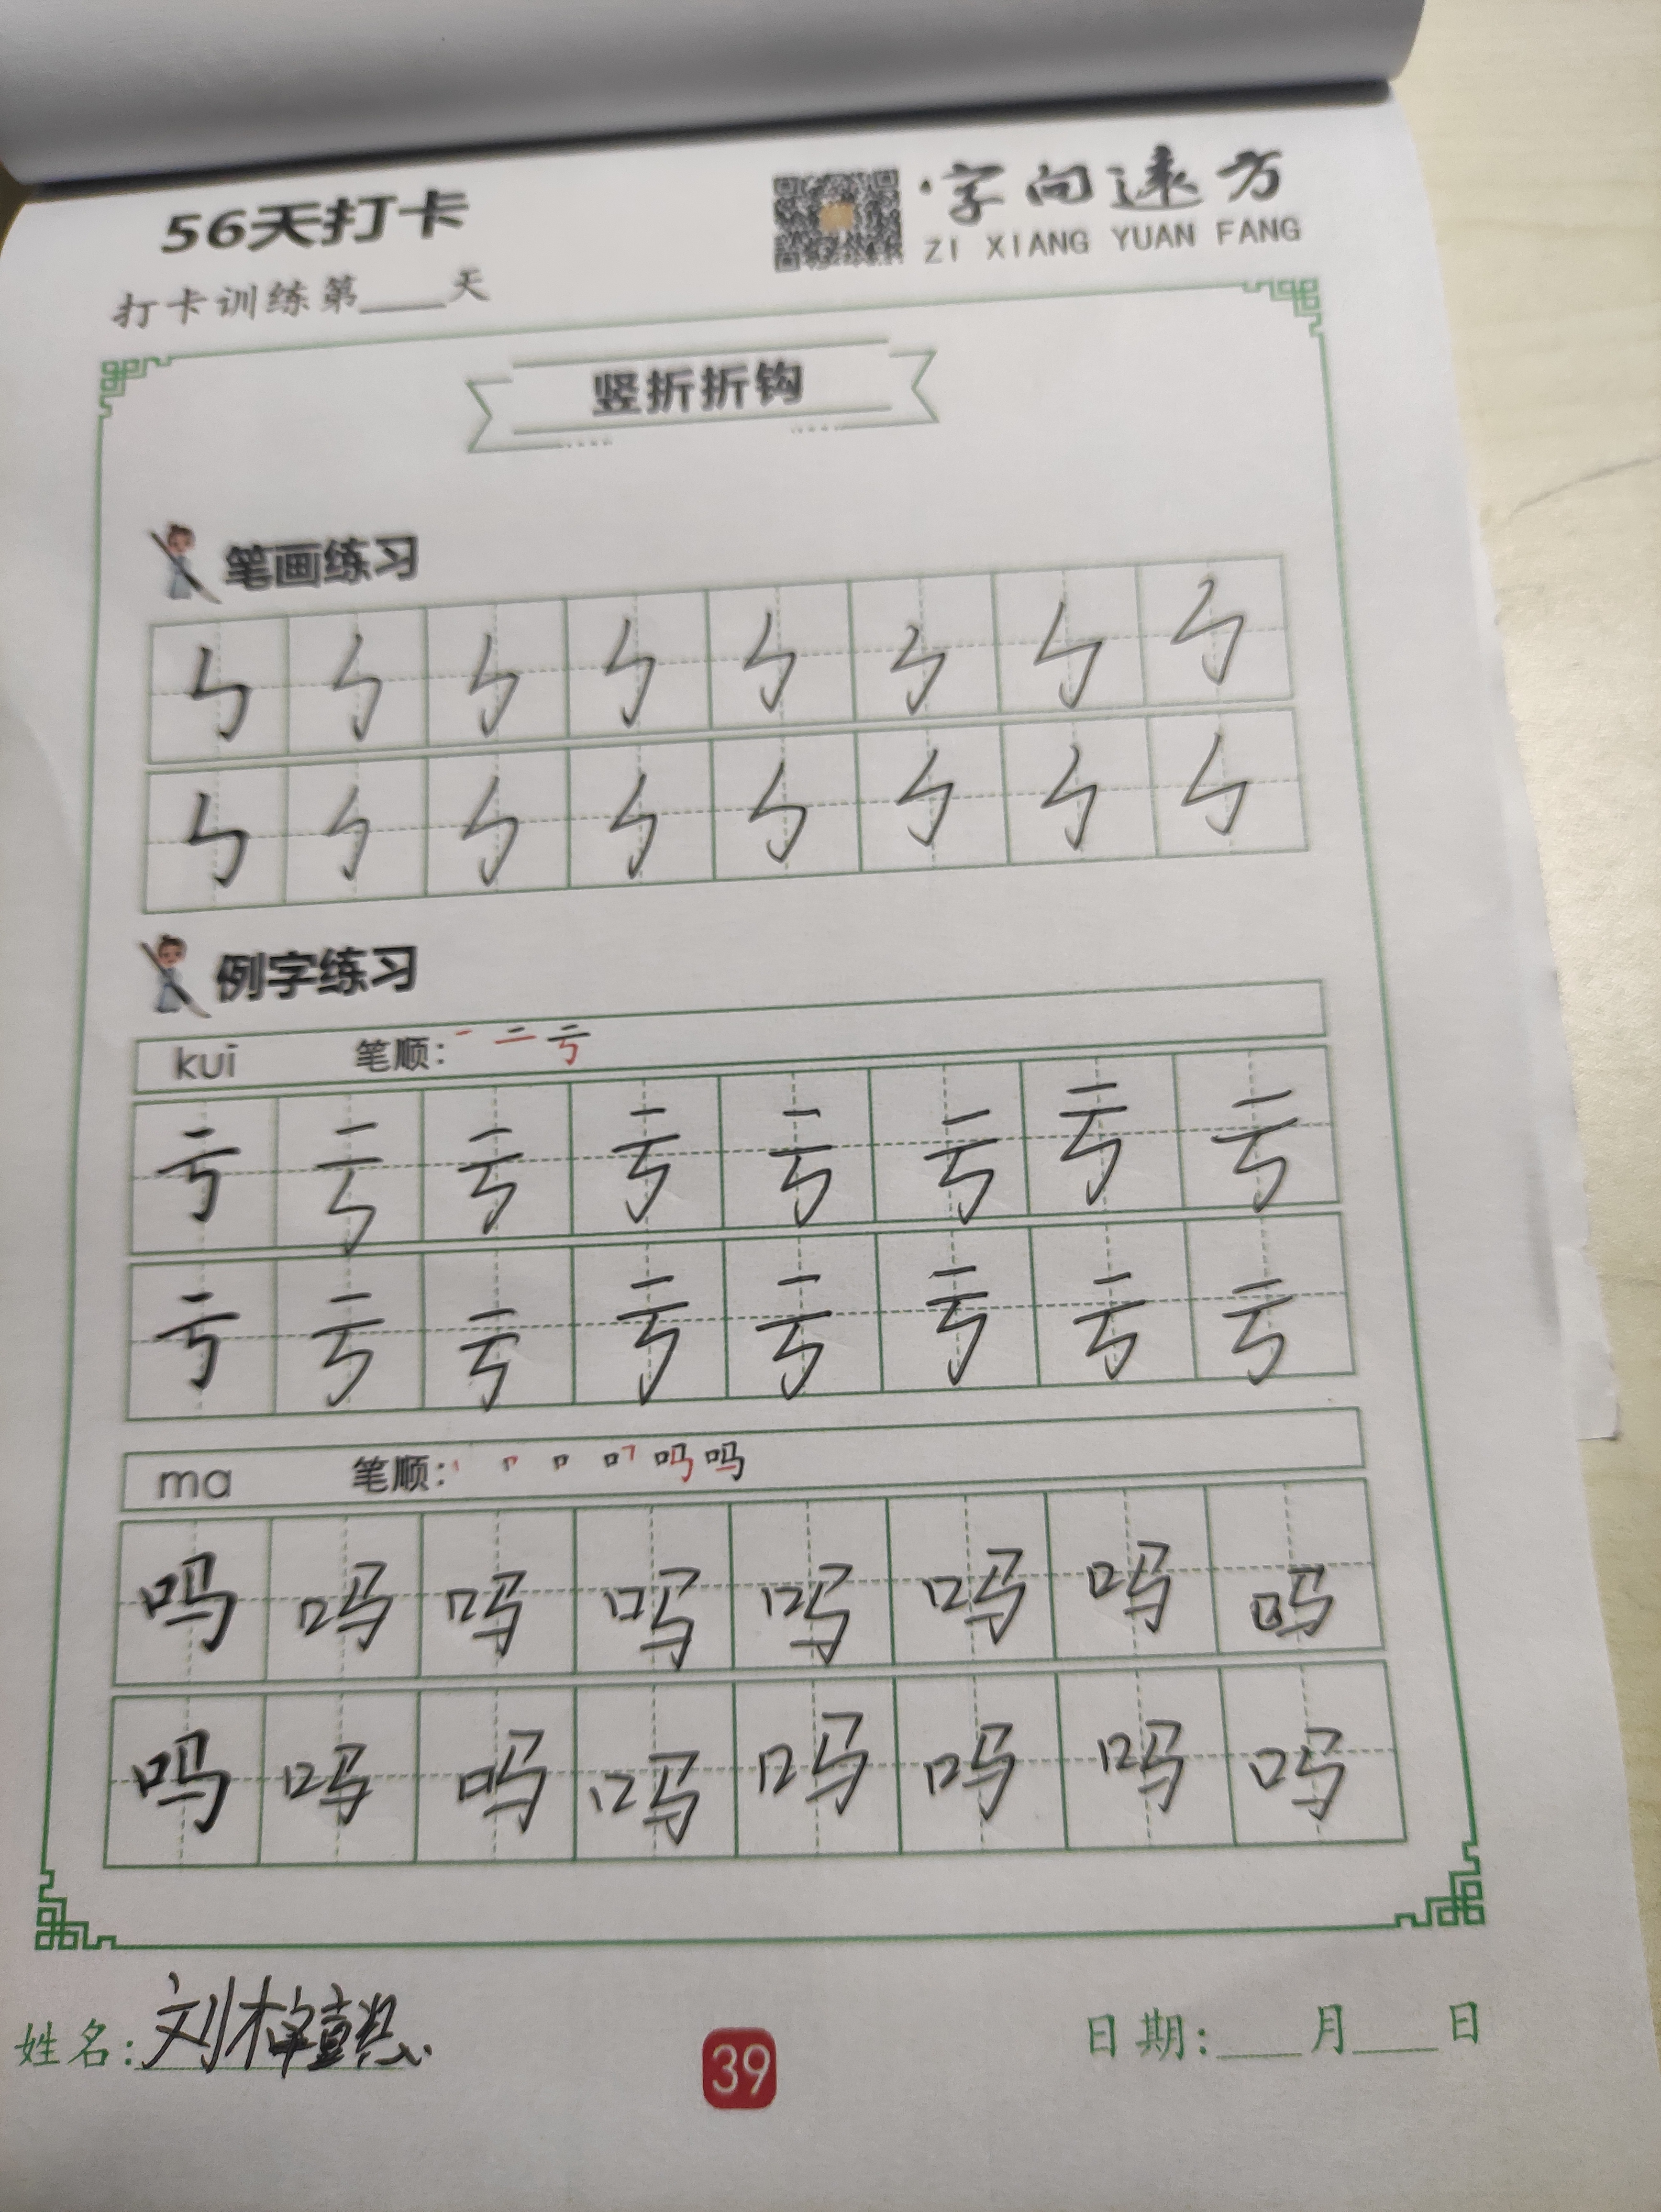 56天打卡
字向远方
ZI XIANG YUAN FANG
打卡训练第____天
竖折折钩
笔画练习
ㄣ ㄣ ㄣ ㄣ ㄣ ㄣ ㄣ ㄣ
ㄣ ㄣ ㄣ ㄣ ㄣ ㄣ ㄣ ㄣ
例字练习
kui 笔顺: 一 二 亏
亏 亏 亏 亏 亏 亏 亏 亏
亏 亏 亏 亏 亏 亏 亏 亏
ma 笔顺: 吗
吗 吗 吗 吗 吗 吗 吗 吗
吗 吗 吗 吗 吗 吗 吗 吗
姓名: 刘
39
日期:____月____日